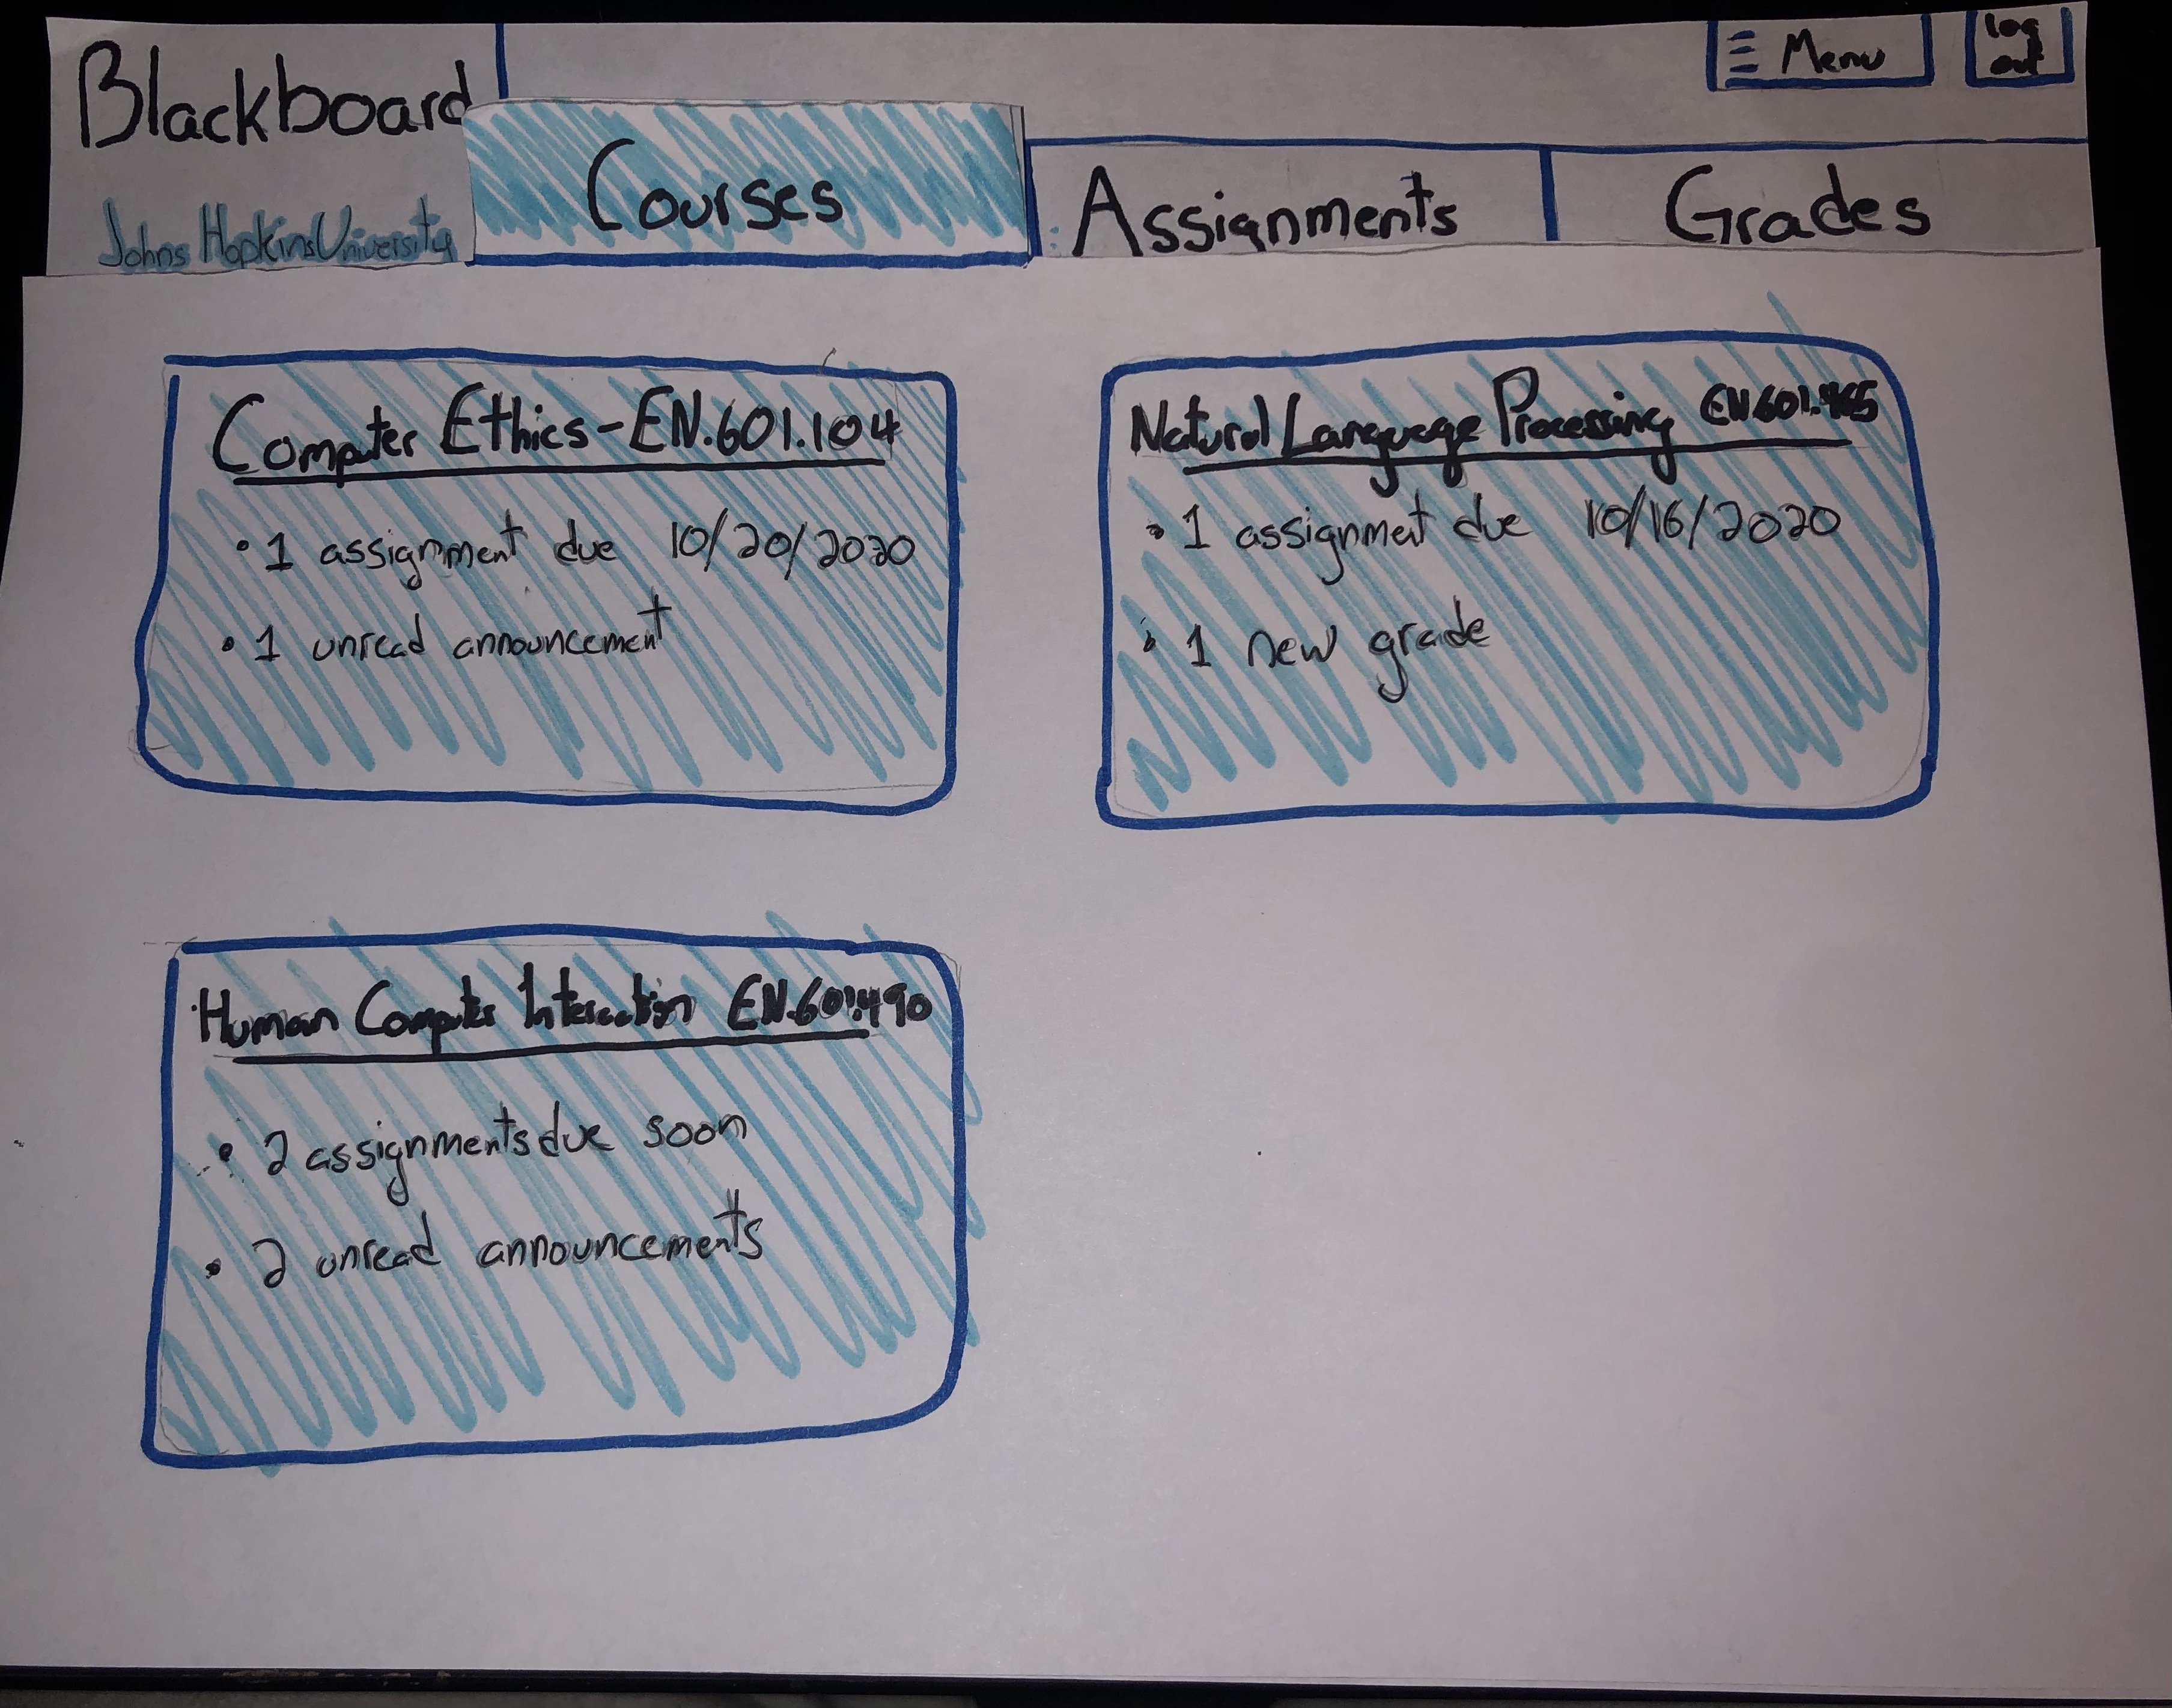 Blackboard
Johns Hopkins University
Courses
Assignments
Grades
Menu
log
out
Computer Ethics - EN.601.104
• 1 assignment due 10/20/2020
• 1 unread announcement
Natural Language Processing EN.601.465
• 1 assignmet due 10/16/2020
• 1 new grade
Human Computer Interaction EN.601.490
• 2 assignments due soon
• 2 unread announcements